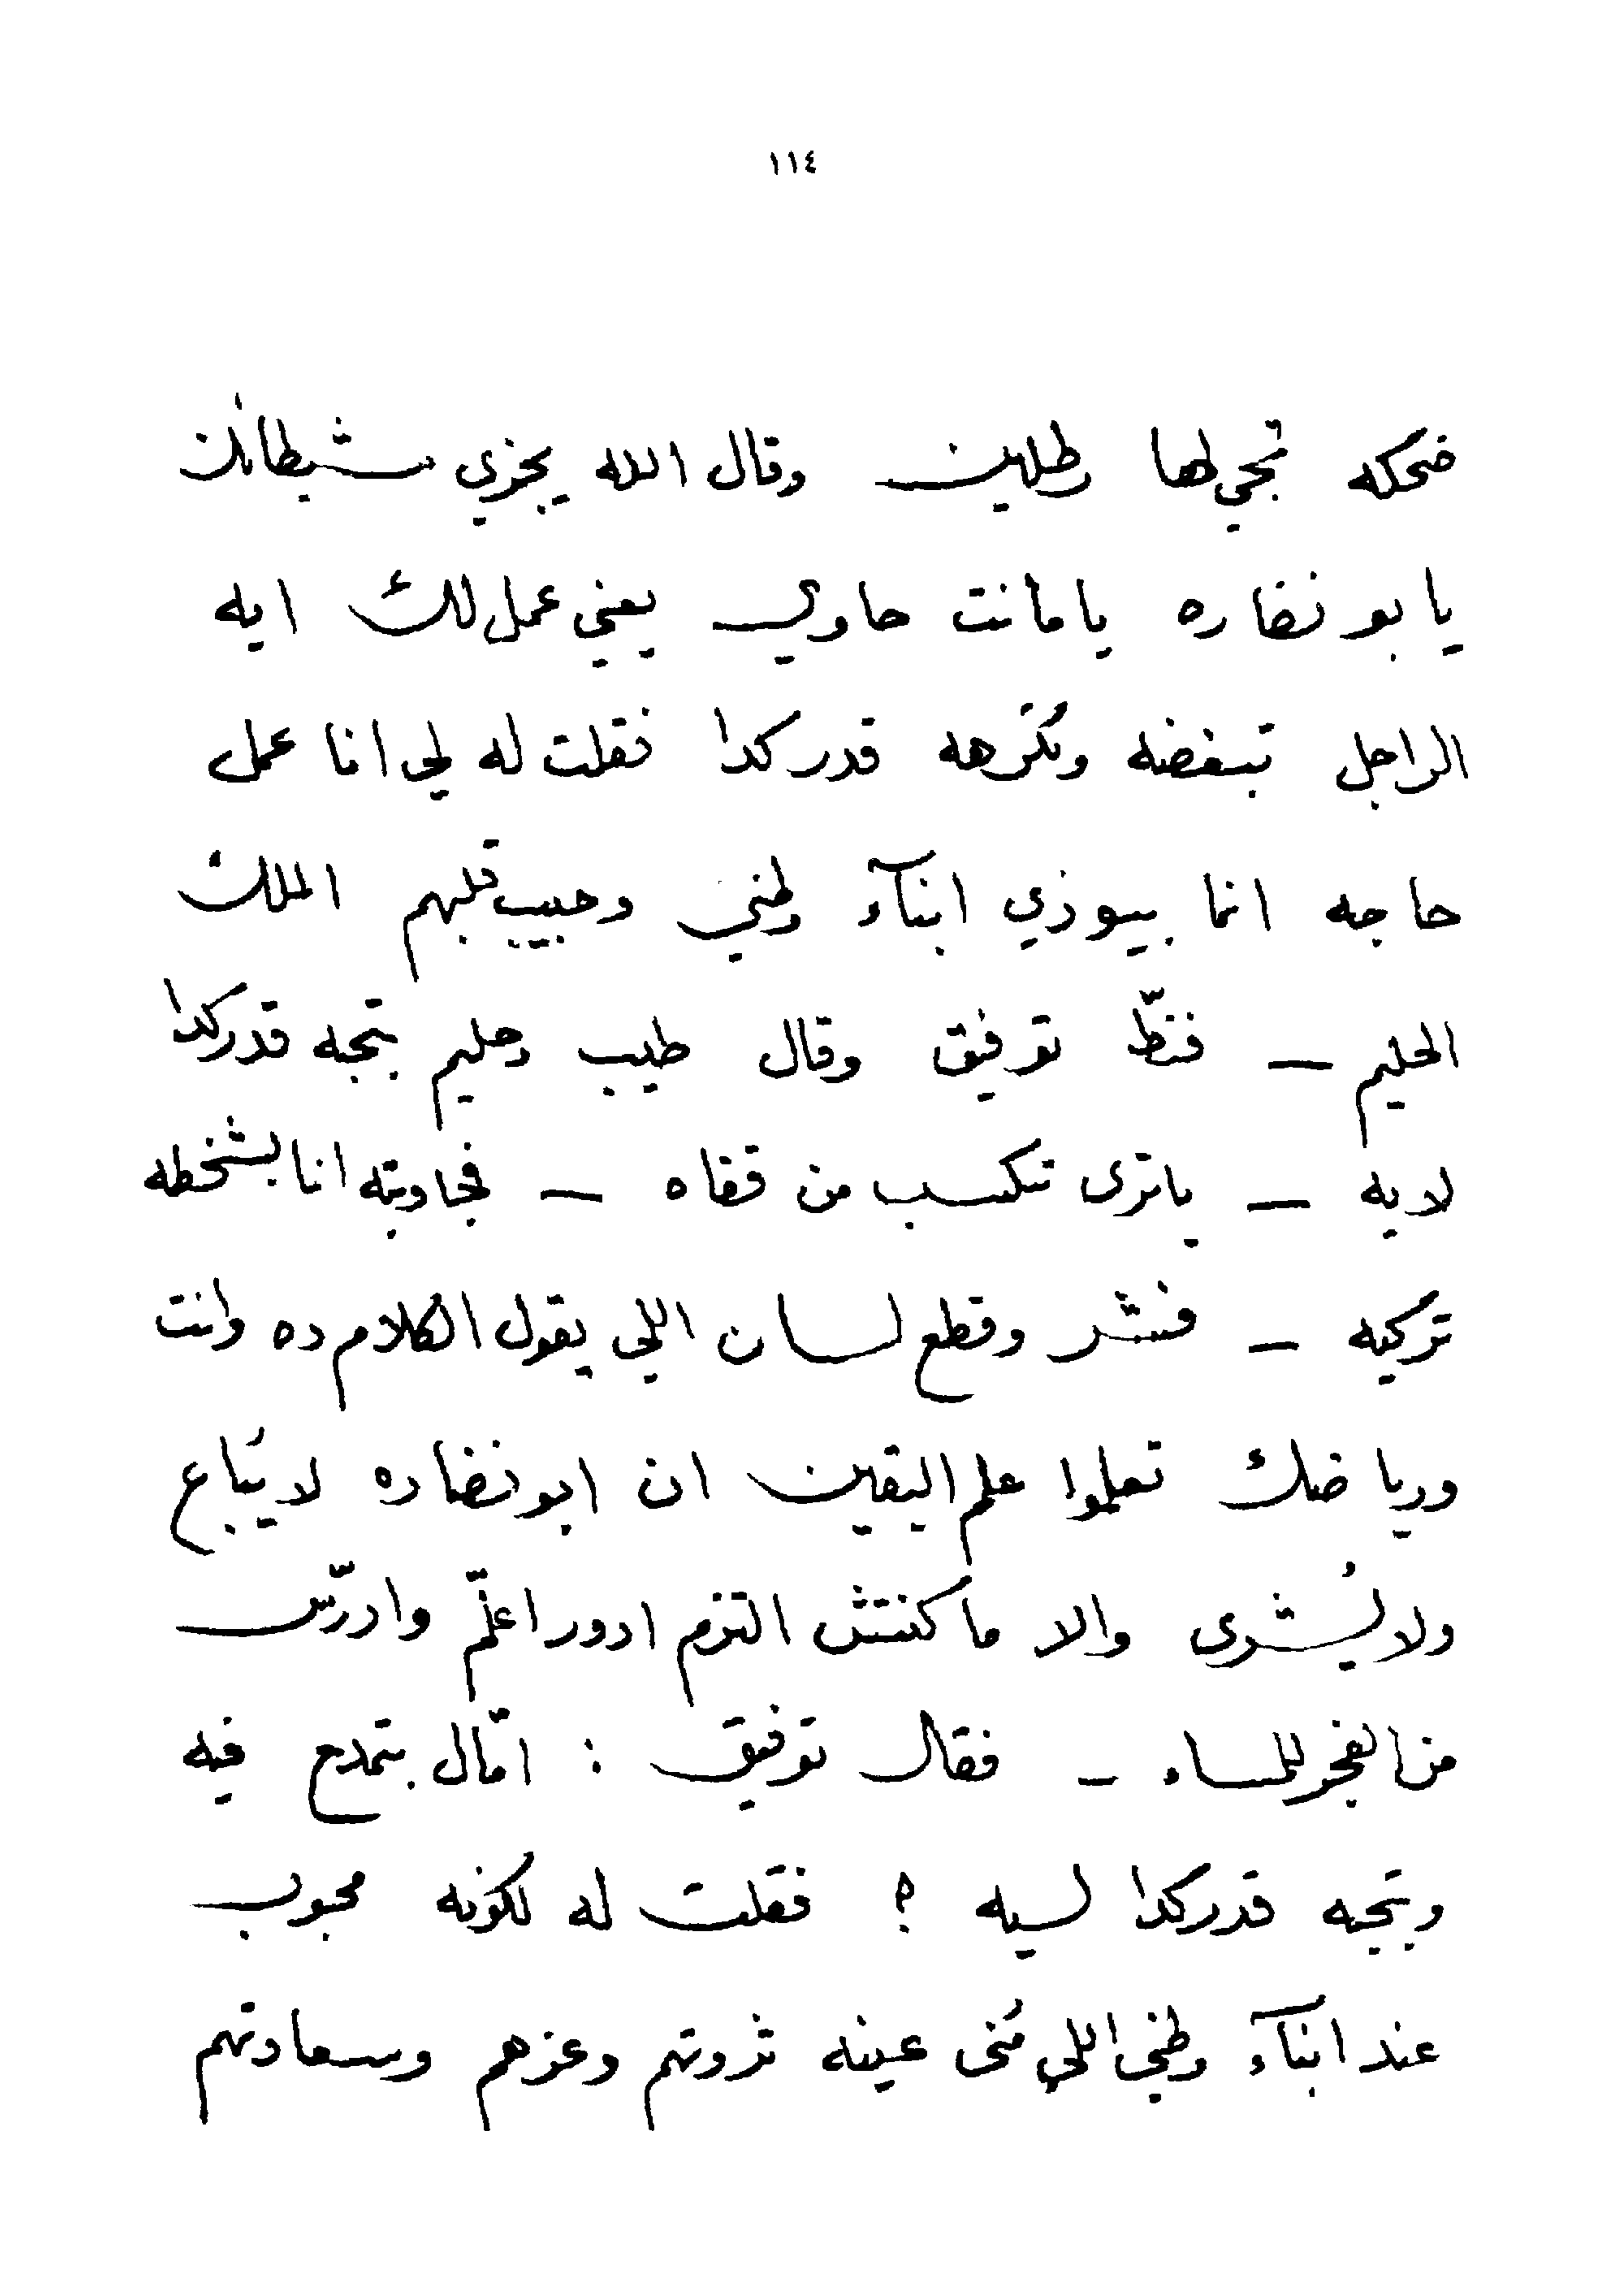 ١١٤
ضحكه تجي لها رطلين وقال الله يجزي شيطانك
يا بو نضاره ياما انت حاوي يعني عمل لك ايه
الراجل تبغضه وتكرهه قدر كدا فقلت له لي انا عمل
حاجه انما بيوذي ابنآء وطني وحبيب قلبهم الملك
الحليم — فنطّ توفيق وقال طيب وحليم بتحبه قدر كدا
لايه — ياترى تكسب من قفاه — فجاوبته انا بشخطه
تركيه — فشر وقطع لسان اللي يقول الكلام ده وانت
ورياضك تعلموا علم اليقين ان ابو نضاره لا يُباع
ولا يُشرى والا ما كنتش التزم ادور اعلّم وادرّس
من الفجر للمساء — فقال توفيق : امّال بتمدح فيه
وبتحبه قدر كدا لسيه ؟ فقلت له لكونه محبوب
عند ابنآء وطني اللي مُنى عينه ثروتهم وعزهم وسعادتهم